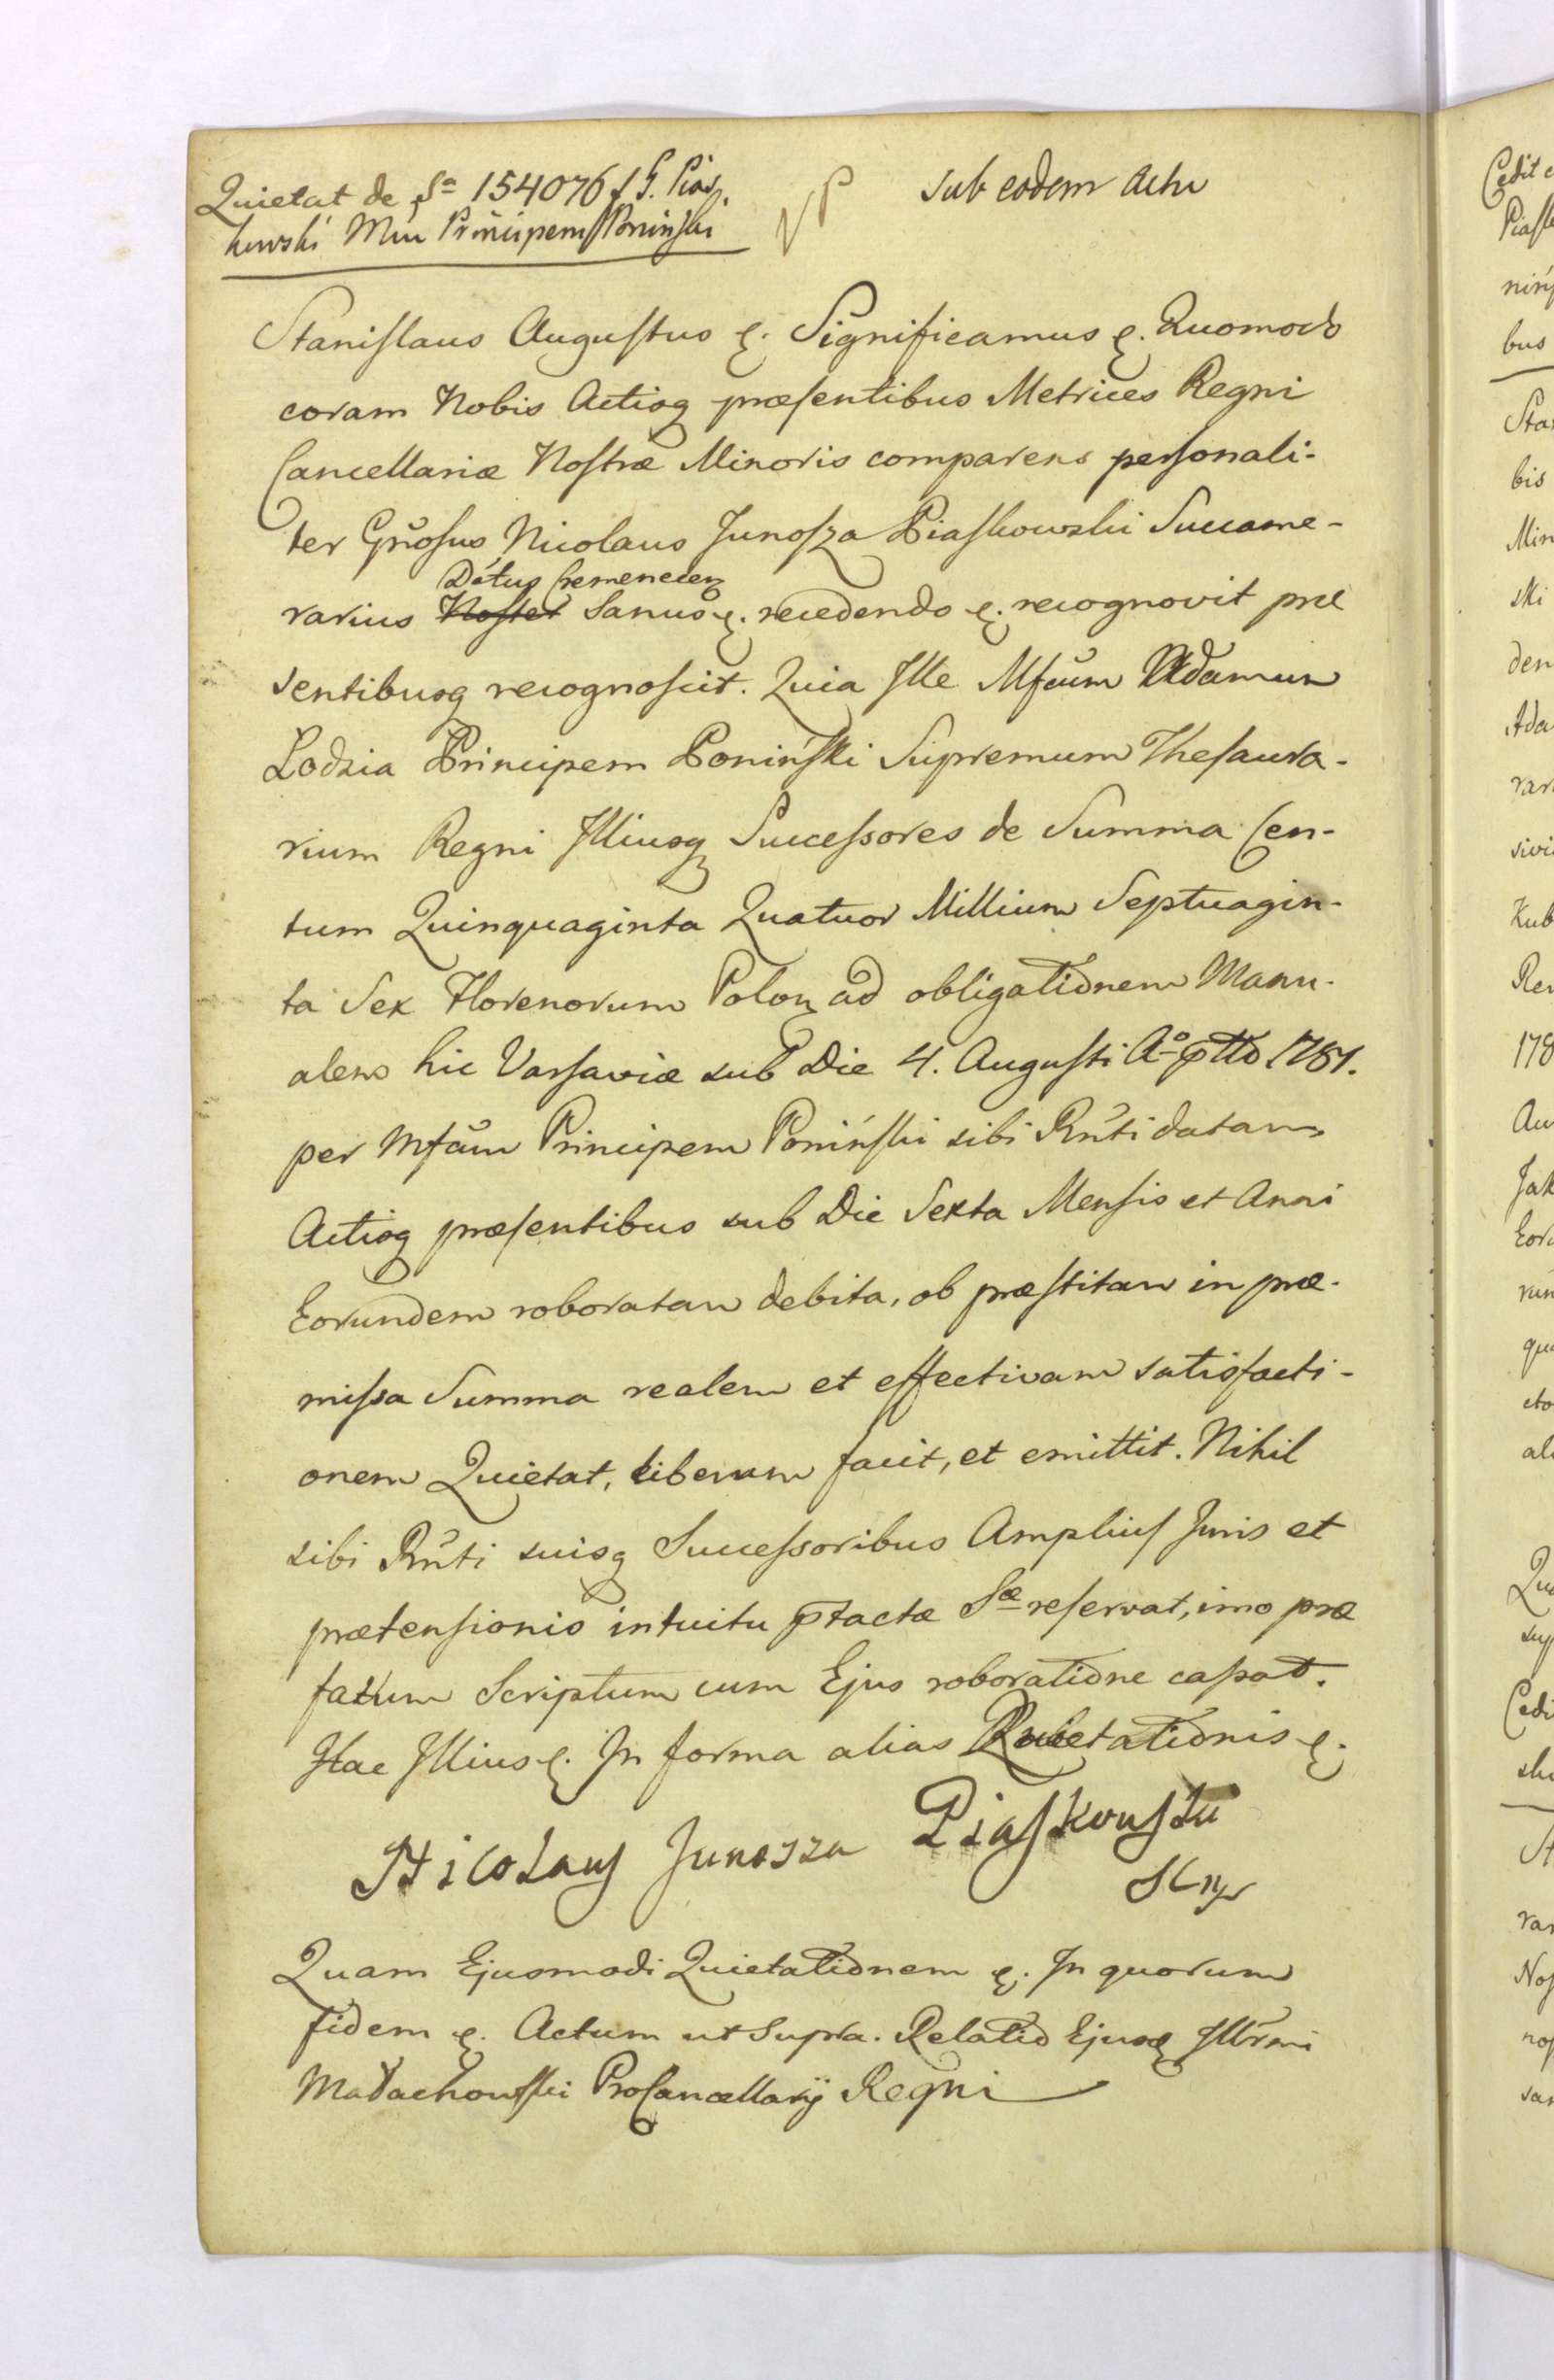 Quietat de Sa 154076 f G. Pias
kowski Mcu Principem Poniński
NP
sub eodem Actu
Stanislaus Augustus &. Significamus &. Quomodo
coram Nobis Actisq praesentibus Metrices Regni
Cancellariae Nostrae Minoris comparens personali-
ter Gn̄osus Nicolaus Junosza Piaskowski Succame-
Dctus Cremenecen
rarius Noster Sanus &. recedendo &. recognovit prae
sentibusq recognoscit. Quia Ille Mfcum Adamum
Lodzia Principem Poniński Supremum Thesaura-
rium Regni Illiusq Successores de Summa Cen-
tum Quinquaginta Quatuor Millium Septuagin-
ta Sex Florenorum Polon ad obligationem Manu-
alem hic Varsaviae sub Die 4. Augusti Ao ptto 1781.
per Mfcum Principem Poniński sibi Rn̄ti datam,
Actisq praesentibus sub Die Sexta Mensis et Anni
Eorundem roboratam debita, ob praestitam in prae-
missa Summa realem et effectivam satisfacti-
onem Quietat, liberum facit, et emittit. Nihil
sibi Rn̄ti suisq Successoribus Amplius Juris et
praetensionis intuitu ptactae Sae reservat, imo prae
fatum Scriptum cum Ejus roboratione cassat.
Hac Illius &. In forma alias Quietationis &.
Nicolaus Junosza Piaskowski
Quam Ejusmodi Quietationem &. In quorum
fidem &. Actum ut Supra. Relatio Ejusq Illsrmi
Małachowski ProCancellarij Regni